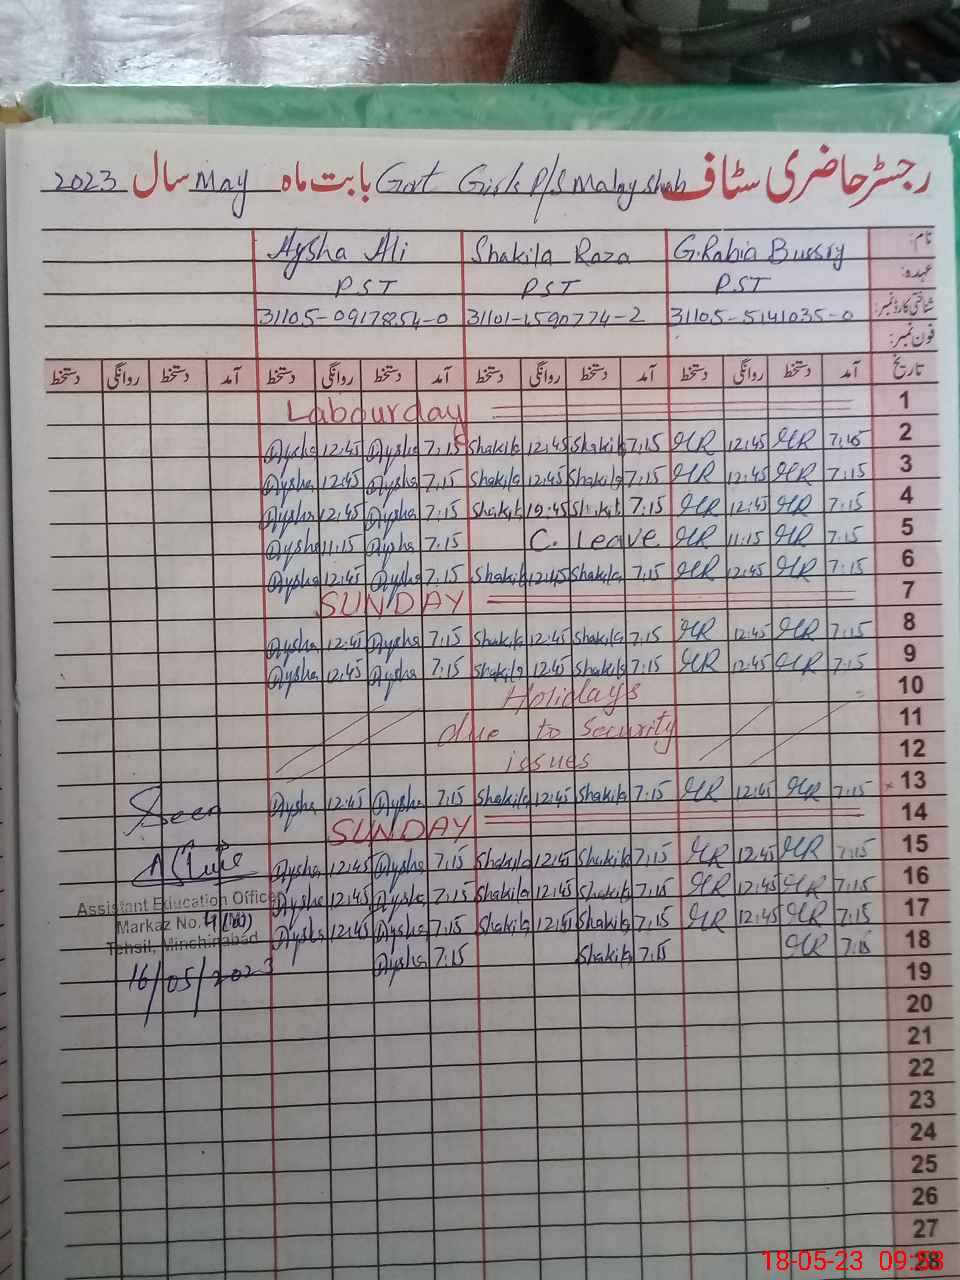 رجسٹر حاضری سٹاف Govt Girls P/S Malay shah بابت ماہ May سال 2023
نام: G.Rabia Bussry Shakila Raza Aysha Ali
عہدہ: PST PST PST
شناختی کارڈ نمبر: 31105-5141035-0 31101-1590774-2 31105-0917854-0
فون نمبر:
تاریخ آمد دستخط روانگی دستخط آمد دستخط روانگی دستخط آمد دستخط روانگی دستخط آمد دستخط روانگی دستخط
Labourday 1
Aysha 12:45 Aysha 7:15 Shakila 12:45 Shakila 7:15 GR 12:45 GR 7:15 2
Aysha 12:45 Aysha 7:15 Shakila 12:45 Shakila 7:15 GR 12:45 GR 7:15 3
Aysha 12:45 Aysha 7:15 Shakil 12:45 Shakil 7:15 GR 12:45 GR 7:15 4
Aysha 11:15 Aysha 7:15 C. Leave GR 11:15 GR 7:15 5
Aysha 12:45 Aysha 7:15 Shakila 12:45 Shakila 7:15 GR 12:45 GR 7:15 6
SUNDAY 7
Aysha 12:45 Aysha 7:15 Shakila 12:45 Shakila 7:15 GR 12:45 GR 7:15 8
Aysha 12:45 Aysha 7:15 Shakila 12:45 Shakila 7:15 GR 12:45 GR 7:15 9
Holidays 10
due to Security 11
issues 12
Seen Aysha 12:45 Aysha 7:15 Shakila 12:45 Shakila 7:15 GR 12:45 GR 7:15 13
SUNDAY 14
Aysha 12:45 Aysha 7:15 Shakila 12:45 Shakila 7:15 GR 12:45 GR 7:15 15
Assistant Education Officer Aysha 12:45 Aysha 7:15 Shakila 12:45 Shakila 7:15 GR 12:45 GR 7:15 16
Markaz No. 4 (W) Aysha 12:45 Aysha 7:15 Shakila 12:45 Shakila 7:15 GR 12:45 GR 7:15 17
Tehsil, Minchinabad Aysha 7:15 Shakila 7:15 GR 7:15 18
16/05/2023 19
20
21
22
23
24
25
26
27
28
18-05-23 09:53